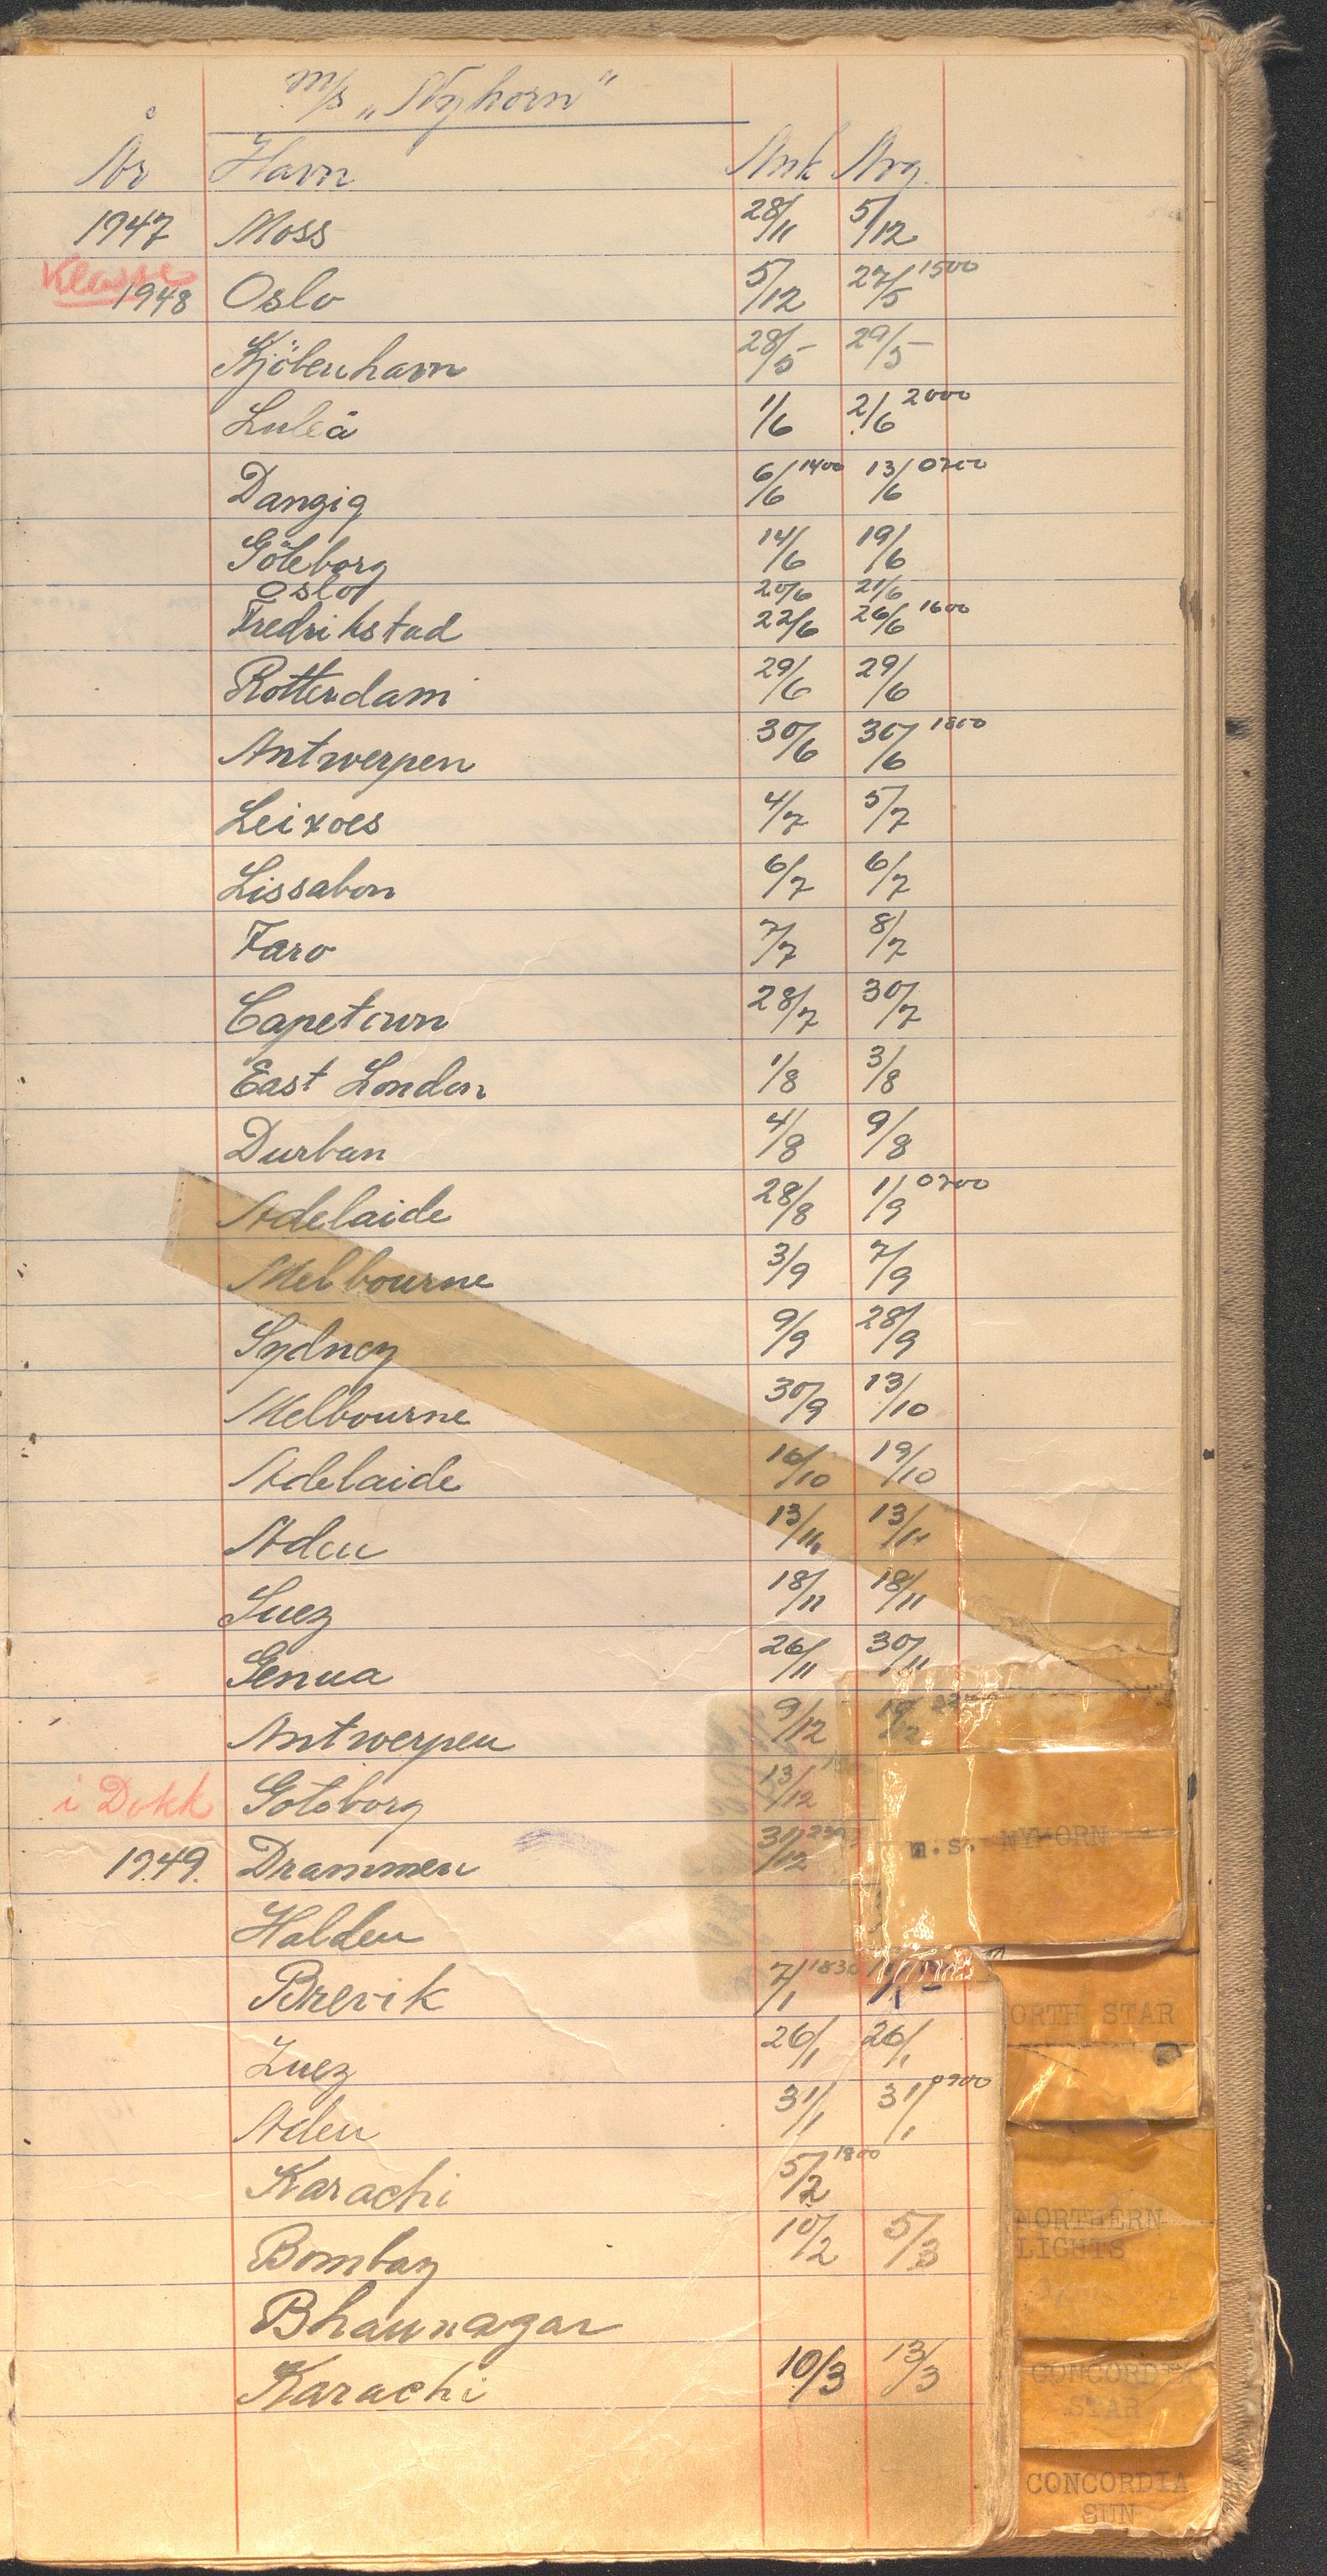 m/s „Nyhorn"
År Havn Ank Avg.
1947 Moss 28/11 5/12
Klasse
1948 Oslo 5/12 27/5 1500
Kjöbenhavn 28/5 29/5
Luleå 1/6 2/6 2000
Danzig 6/6 1400 13/6 0700
Göteborg 14/6 19/6
Oslo 20/6 21/6
Fredrikstad 22/6 26/6 1600
Rotterdam 29/6 29/6
Antwerpen 30/6 30/6 1800
Leixoes 4/7 5/7
Lissabon 6/7 6/7
Faro 7/7 8/7
Capetown 28/7 30/7
East London 1/8 3/8
Durban 4/8 9/8
Adelaide 28/8 1/9 0700
Melbourne 3/9 7/9
Sydney 9/9 28/9
Melbourne 30/9 13/10
Adelaide 16/10 19/10
Aden 13/11 13/11
Suez 18/11 18/11
Genua 26/11 30/11
Antwerpen 9/12
i Dokk Götoborg 13/12
1949. Drammen 31/12
m.s. NYHORN
Halden
Brevik 7/1 1830
NORTH STAR
Zuez 26/1 26/1
Aden 31/1 31/1 0900
Karachi 5/2 1800
Bombay 10/2 5/3
NORTHERN
LIGHTS
Bhaunagar
Karachi 10/3 13/3
CONCORDIA
STAR
CONCORDIA
SUN